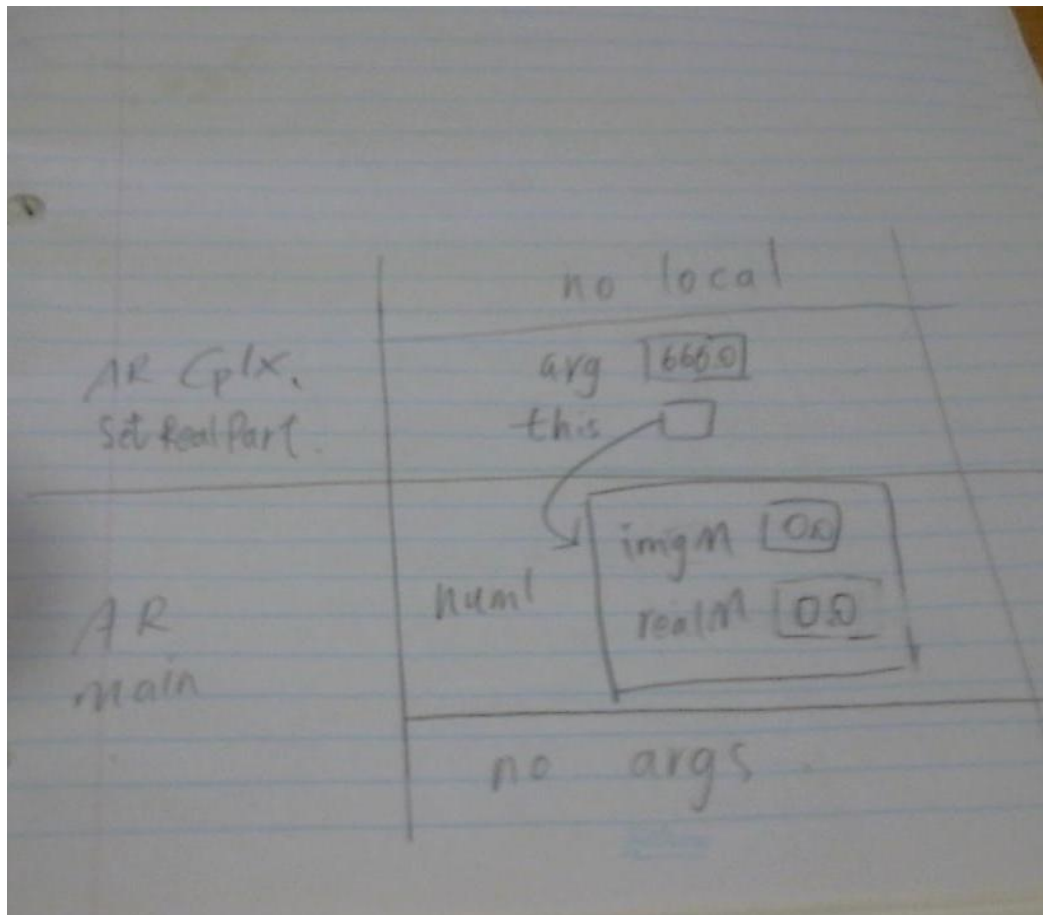 no local
AR Cplx.
Set Real Part.
arg 666.0
this
AR
main
num1
imgM 0.0
realM 0.0
no args